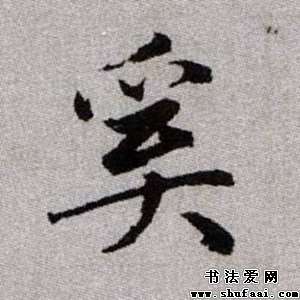 奚
书法爱网
www.shufaai.com